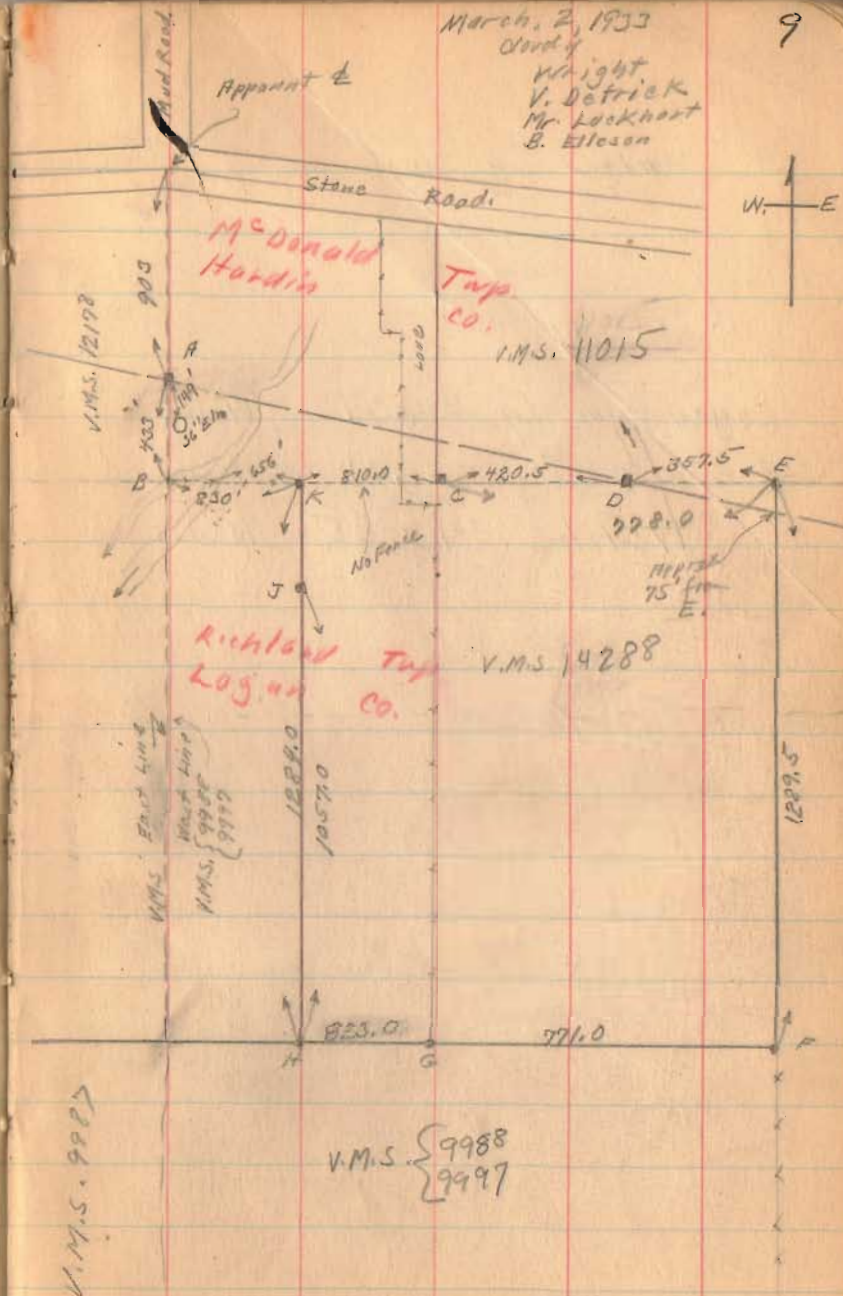 9
March, 2, 1933
Cloudy
Wright
V. Detrick
Mr. Lockhart
B. Elleson
Mud Road.
Apparent ℄
Stone Road.
W. E
McDonald Twp.
Hardin Co.
903
V.M.S. 12178
V.M.S. 11015
A
149'
36" Elm
433
B
656'
830'
K
810.0
C
420.5
D
357.5
E
778.0
No Fence
75' from
E.
J
Richland Twp
Logan Co.
V.M.S 14288
V.M.S. East Line
West Line
V.M.S. {9988
{9997
1289.0
1057.0
1289.5
H
823.0
G
771.0
F
V.M.S. {9988
{9997
V.M.S. 9987